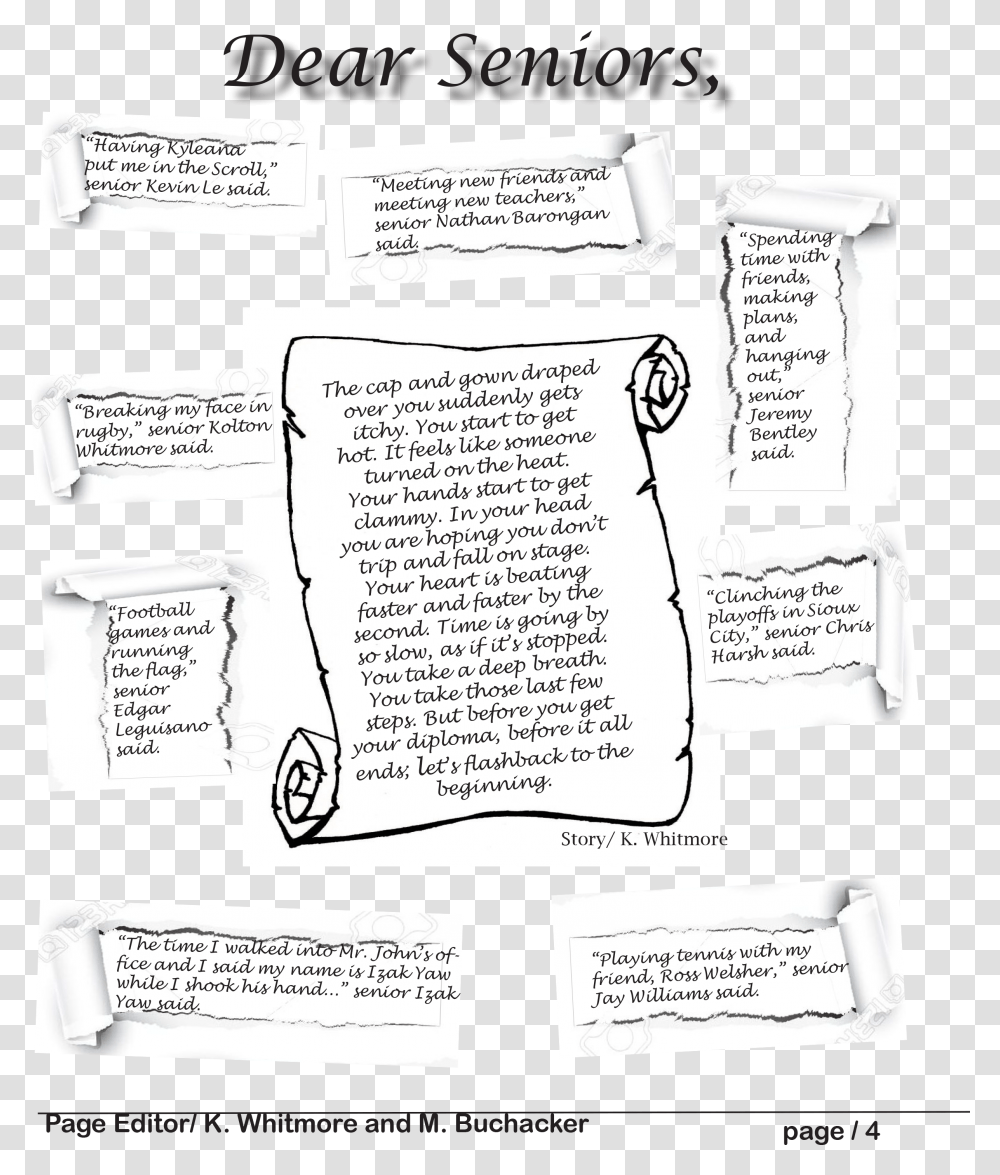 Dear Seniors,
“Having Kyleana
put me in the Scroll,”
senior Kevin Le said.
“Meeting new friends and
meeting new teachers,”
senior Nathan Barongan
said.
“Spending
time with
friends,
making
plans,
and
hanging
out,”
senior
Jeremy
Bentley
said.
“Breaking my face in
rugby,” senior Kolton
Whitmore said.
The cap and gown draped
over you suddenly gets
itchy. You start to get
hot. It feels like someone
turned on the heat.
Your hands start to get
clammy. In your head
you are hoping you don’t
trip and fall on stage.
Your heart is beating
faster and faster by the
second. Time is going by
so slow, as if it’s stopped.
You take a deep breath.
You take those last few
steps. But before you get
your diploma, before it all
ends; let’s flashback to the
beginning.
Story/ K. Whitmore
“Football
games and
running
the flag,”
senior
Edgar
Leguisano
said.
“Clinching the
playoffs in Sioux
City,” senior Chris
Harsh said.
“The time I walked into Mr. John’s of-
fice and I said my name is Izak Yaw
while I shook his hand...” senior Izak
Yaw said.
“Playing tennis with my
friend, Ross Welsher,” senior
Jay Williams said.
Page Editor/ K. Whitmore and M. Buchacker
page / 4